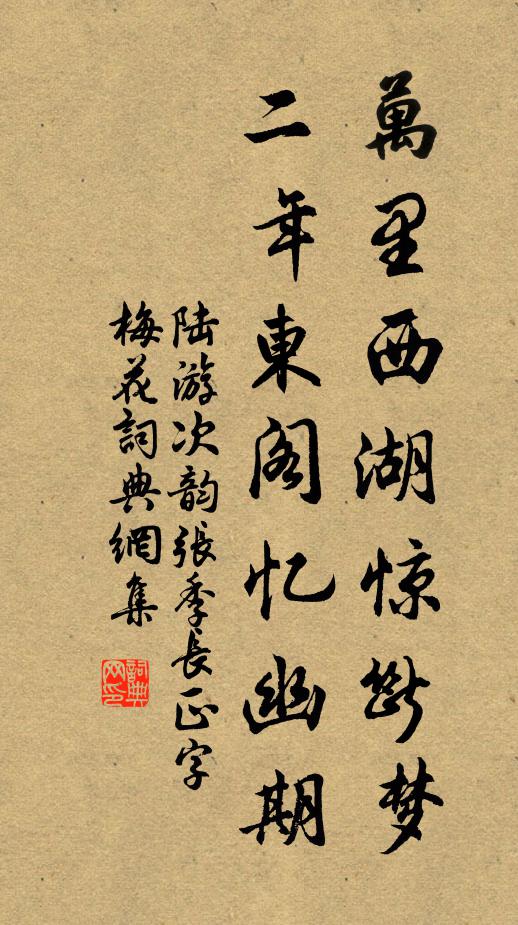 萬里西湖惊断梦
二年東阁忆幽期
陆游次韵張季長正字
梅花詞典網集
詞典网印